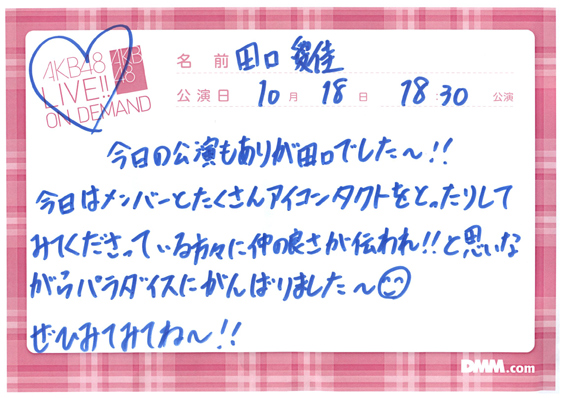 AKB48
LIVE!!
ON DEMAND
AKB
48
名 前 田口 愛佳
公演日 10 月 18 日 18:30 公演
今日の公演もありが田口でした〜!!
今日はメンバーとたくさんアイコンタクトをとったりして
みてくださっている方々に仲の良さが伝われ!!と思いな
がらパラダイスにがんばりました〜
ぜひみてみてね〜!!
DMM.com